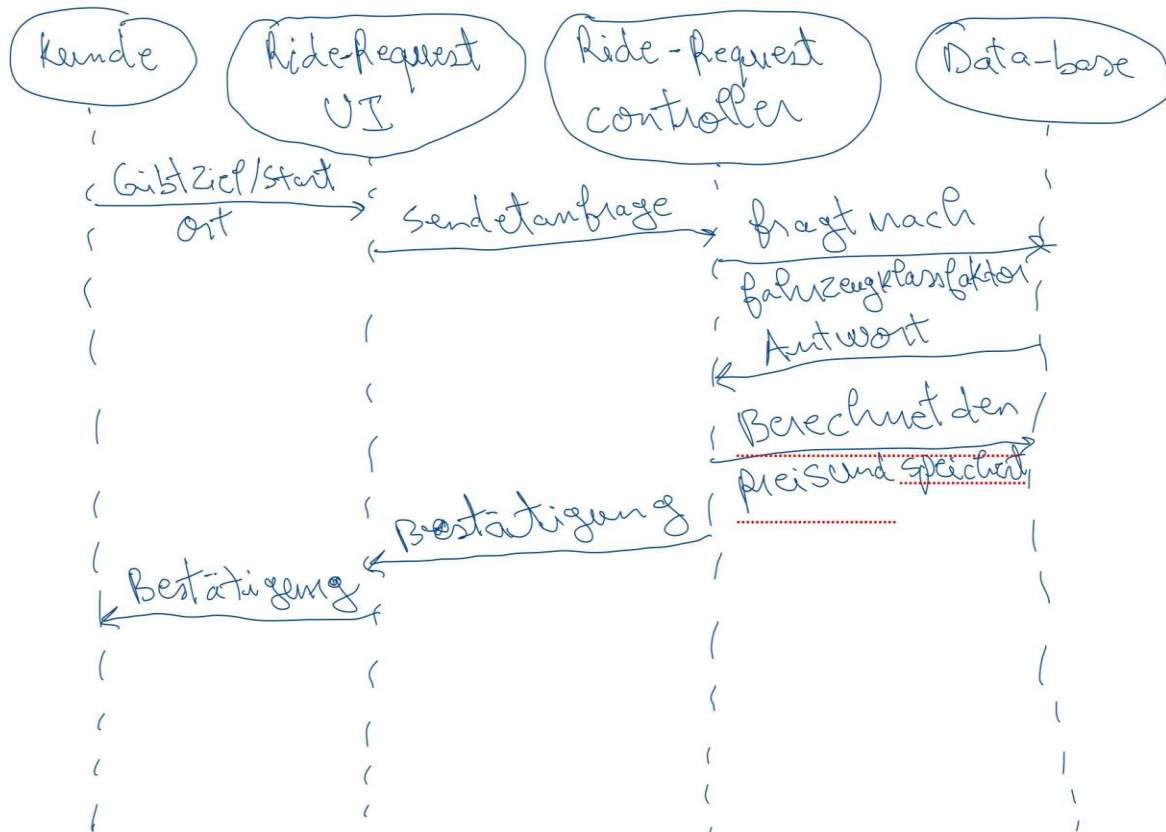 Kunde
Ride-Request
UI
Ride-Request
controller
Data-base
Gibt Ziel/Start
Ort
sendet anfrage
fragt nach
fahrzeugklassfaktor
Antwort
Berechnet den
preis und speichert
Bestätigung
Bestätigung